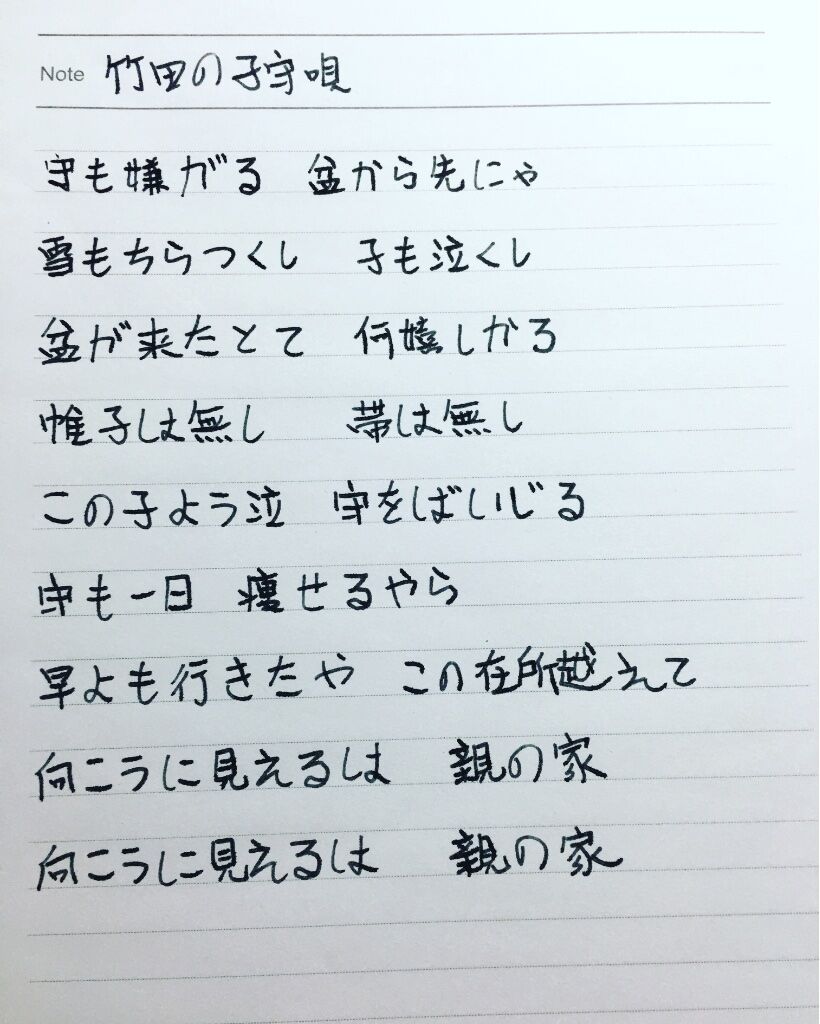 Note 竹田の子守唄
守も嫌がる 盆から先にゃ
雪もちらつくし 子も泣くし
盆が来たとて 何嬉しかろ
帷子は無し 帯は無し
この子よう泣 守をばいじる
守も一日 痩せるやら
早よも行きたや この在所越えて
向こうに見えるは 親の家
向こうに見えるは 親の家